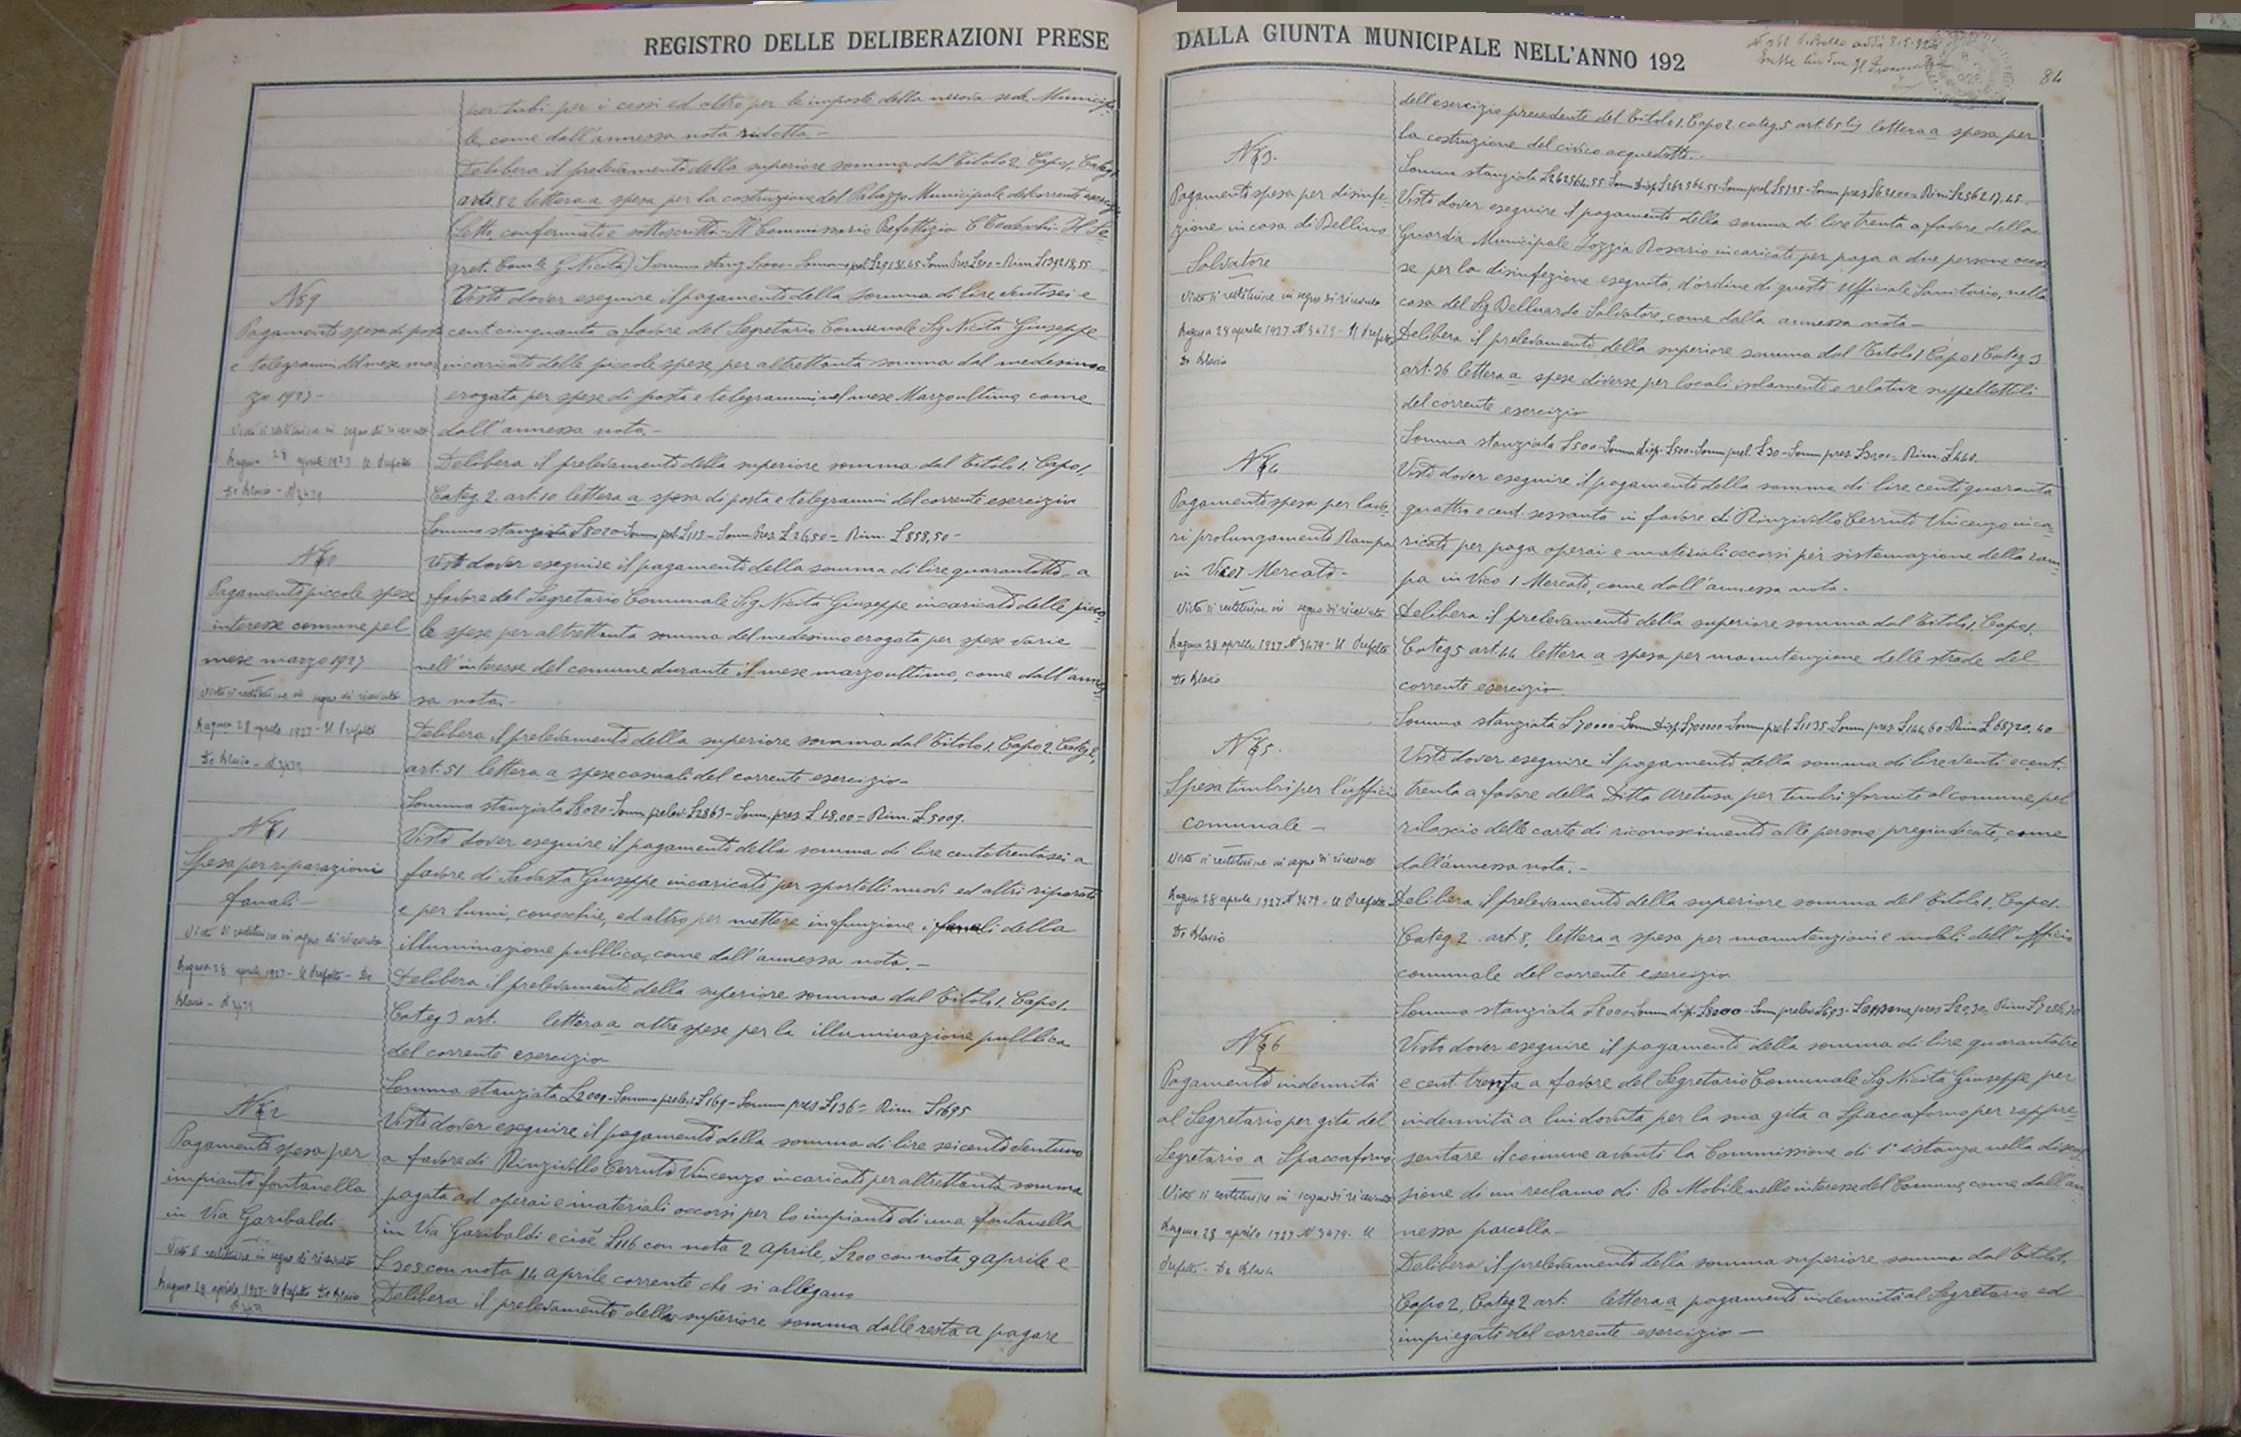 REGISTRO DELLE DELIBERAZIONI PRESE
per tubi per i cessi ed altro per le imposte della nuova sede Municipa
le, come dall'annessa nota ridotta -
Delibera il prelevamento della superiore somma dal Titolo 2 Capo 1, Categ 1
art. 52 lettera a spesa per la costruzione del Palazzo Municipale del corrente esercizio
Letto, confermato e sottoscritto - Il Commissario Prefettizio Il Se
gret. Com.le G Nicita
N 59
Pagamento spesa di posta
e telegrammi del mese mar
zo 1927 -
Visto si restituisce in segno di ricevuta
Ragusa 28 aprile 1927 Il Prefetto
De Blasio - N 3479
Visto dover eseguire il pagamento della somma di lire ventisei e
cent cinquanta a favore del Segretario Comunale Sig Nicita Giuseppe
incaricato delle piccole spese, per altrettanta somma dal medesimo
erogata per spese di posta e telegrammi, nel mese Marzo ultimo, come
dall'annessa nota. -
Delibera il prelevamento della superiore somma dal Titolo 1. Capo 1,
Categ 2. art. 10 lettera a spesa di posta e telegrammi del corrente esercizio
Somma stanziata Somm pres £ 26,50 = Rim. £ 858,50 -
N 60
Pagamento piccole spese
interesse comune pel
mese marzo 1927
Visto si restituisce in segno di ricevuta
Ragusa 28 aprile 1927 - Il Prefetto
De Blasio - N 3479
Visto dover eseguire il pagamento della somma di lire quarantotto, a
favore del Segretario Comunale Sig Nicita Giuseppe incaricato delle picco
le spese per altrettanta somma del medesimo erogata per spese varie
nell'interesse del comune durante il mese marzo ultimo, come dall'annes
sa nota. -
Delibera il prelevamento della superiore somma dal Titolo 1. Capo 2. Categ 2,
art. 51 lettera a spese casuali del corrente esercizio -
Somma stanziata Somm prelev £ 2863 - Somm. pres £ 48,00 = Rim. £ 5009.
N 61
Spesa per riparazioni
fanali -
Visto si restituisce in segno di ricevuta
Ragusa 28 aprile 1927 - Il Prefetto - De
Blasio - N 3479
Visto dover eseguire il pagamento della somma di lire centotrentasei a
favore di Giuseppe incaricato per sportelli nuovi ed altri riparati
e per lumi, conocchie, ed altro per mettere in funzione i fanali della
illuminazione pubblica, come dall'annessa nota. -
Delibera il prelevamento della superiore somma dal Titolo 1. Capo 1.
Categ 3 art. lettera a altre spese per la illuminazione pubblica
del corrente esercizio
Somma stanziata £ 2000 - Somma prelev £ 169 - Somma pres £ 136 = Rim. £ 1695
N 62
Pagamento spesa per
impianto fontanella
in Via Garibaldi
Visto si restituisce in segno di ricevuta
Ragusa 28 aprile 1927 - Il Prefetto De Blasio
N 3479
Visto dover eseguire il pagamento della somma di lire seicentoventuno
a favore di Rinzivillo Cerruto Vincenzo incaricato per altrettanta somma
pagata ad operai e materiali occorsi per lo impianto di una fontanella
in Via Garibaldi e cioè £ 116 con nota 2 aprile, £ 200 con nota 9 aprile e
£ 305 con nota 14 aprile corrente che si allegano
Delibera il prelevamento della superiore somma dalle resta a pagare
DALLA GIUNTA MUNICIPALE NELL'ANNO 192
84
dell'esercizio precedente del Titolo 1. Capo 2 categ. 5 art. 65 bis lettera a spesa per
la costruzione del civico acquedotto. -
Somma stanziata £ 262564.55 Somm disp £ 262564.55
N 63.
Pagamento spesa per disinfe-
zione in casa di Bellino
Salvatore
Visto si restituisce in segno di ricevuta
Ragusa 28 aprile 1927 N 3479 - Il Prefetto
De Blasio
Visto dover eseguire il pagamento della somma di lire trenta a favore della
Guardia Municipale Rosario incaricato per paga a due persone occor
se per la disinfezione eseguita, d'ordine di questo Ufficiale Sanitario, nella
casa del Sig Belluardo Salvatore, come dalla annessa nota -
Delibera il prelevamento della superiore somma dal Titolo 1 Capo 1 Categ 3
art. 36 lettera a spese diverse per locali isolamento e relative suppellettili
del corrente esercizio
Somma stanziata £ 500 - Somma disp. £ 500 - Somm prel £ 30 - Somm pres
N 64
Pagamento spesa per lavo-
ri prolungamento Rampa
in Vico 1 Mercato -
Visto si restituisce in segno di ricevuta
Ragusa 28 aprile 1927 N 3479 - Il Prefetto
De Blasio
Visto dover eseguire il pagamento della somma di lire cento quaranta
quattro e cent. sessanta in favore di Rinzivillo Cerruto Vincenzo inca
ricato per paga operai e materiali occorsi per sistemazione della ram-
pa in Vico 1 Mercato, come dall'annessa nota. -
Delibera il prelevamento della superiore somma dal Titolo 1. Capo 1.
Categ 5 art. 44 lettera a spesa per manutenzione delle strade del
corrente esercizio
Somma stanziata £ 70000 - Somm disp £ 70000 - Somm prel. £ 1135 - Somm pres £ 144,60 - Rim £ 68720.40
N 65.
Spesa timbri per l'ufficio
comunale -
Visto si restituisce in segno di ricevuta
Ragusa 28 aprile 1927 N 3479 - Il Prefetto
De Blasio
Visto dover eseguire il pagamento della somma di lire venti e cent.
trenta a favore della Ditta Aretusa per timbri forniti al comune pel
rilascio delle carte di riconoscimento alle persone pregiudicate, come
dall'annessa nota. -
Delibera il prelevamento della superiore somma del Titolo 1, Capo 1.
Categ 2 art 8, lettera a spesa per manutenzione mobili dell'ufficio
comunale del corrente esercizio
Somma stanziata £ 8000 Somm disp. £ 8000 - Somm prelev £ 693 pres £ 20,30 Rim £ 7286,70
N 66
Pagamento indennità
al Segretario per gita del
Segretario a Spaccaforno
Visto si restituisce in segno di ricevuta
Ragusa 28 aprile 1927 N 3479. Il
Prefetto - De Blasio
Visto dover eseguire il pagamento della somma di lire quarantatre
e cent. trenta a favore del Segretario Comunale Sig Nicita Giuseppe per
indennità a lui dovuta per la sua gita a Spaccaforno per rappre-
sentare il comune avanti la Commissione di 1° istanza nella discus
sione di un reclamo di R. Mobile nello interesse del Comune, come dall'an
nessa parcella -
Delibera il prelevamento della somma superiore somma dal Titolo 1,
Capo 2, Categ 2 art. lettera a pagamento indennità al Segretario ed
impiegati del corrente esercizio -